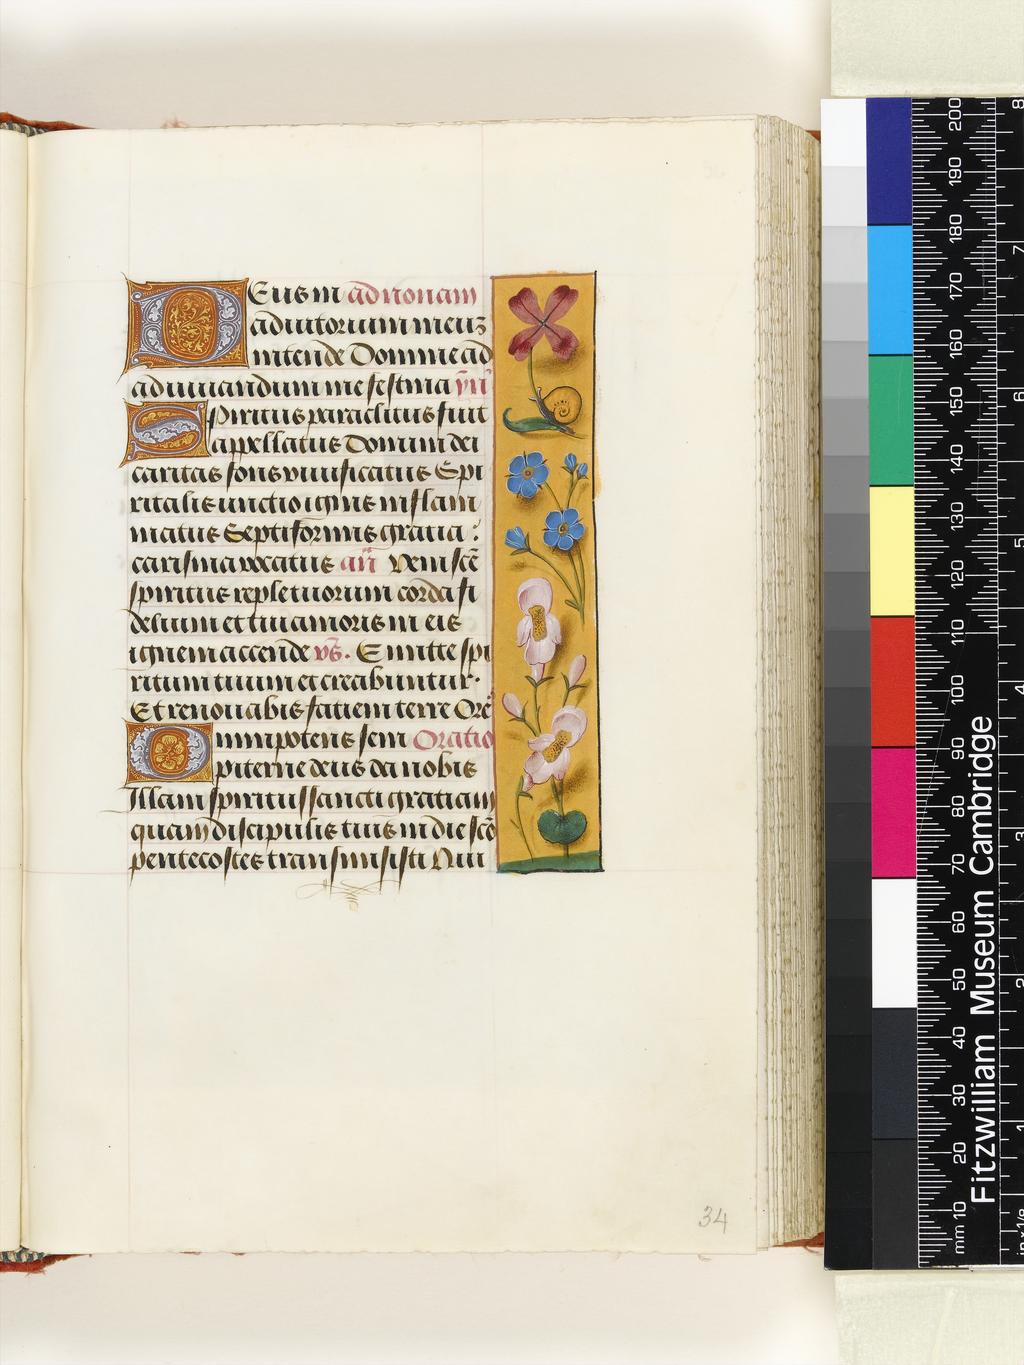 Deus in ad nonam
adiutorium meuʒ
intende Domine ad
adiuuandum me festina yn̄
Spiritus paraclitus fuit
appellatus Donum dei
caritas fons viuificatus Spi
ritalis unctio ignis inflam
matus Septiformis gratia :
carisma vocatus an̄ Veni scē
spiritus reple tuorum corda fi
delium et tui amoris in eis
ignem accende vs̄. Emitte spi
ritum tuum et creabuntur.
Et renouabis fatiem terre Orē
Omnipotens sem Oratio
piterne deus da nobis
Illam spiritussancti gratiam
quam discipulis tuis in die scō
pentecostes transmisisti Qui
34
Fitzwilliam Museum Cambridge
mm 10 20 30 40 50 60 70 80 90 100 110 120 130 140 150 160 170 180 190 200
inx1/8 1 2 3 4 5 6 7 8